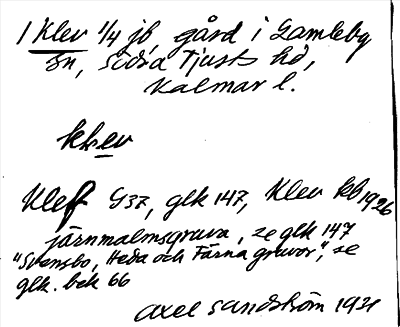 1 Klev 1/4 jb, gård i Gamleby
sn, Södra Tjusts hd,
Kalmar l.
klev
Klef G37, glk 147, Klev kb 1926
järnmalmsgruva, se glk 147
"Svensbo, Heda och Färna gruvor", se
glk. bek 66
Axel Sandström 1931